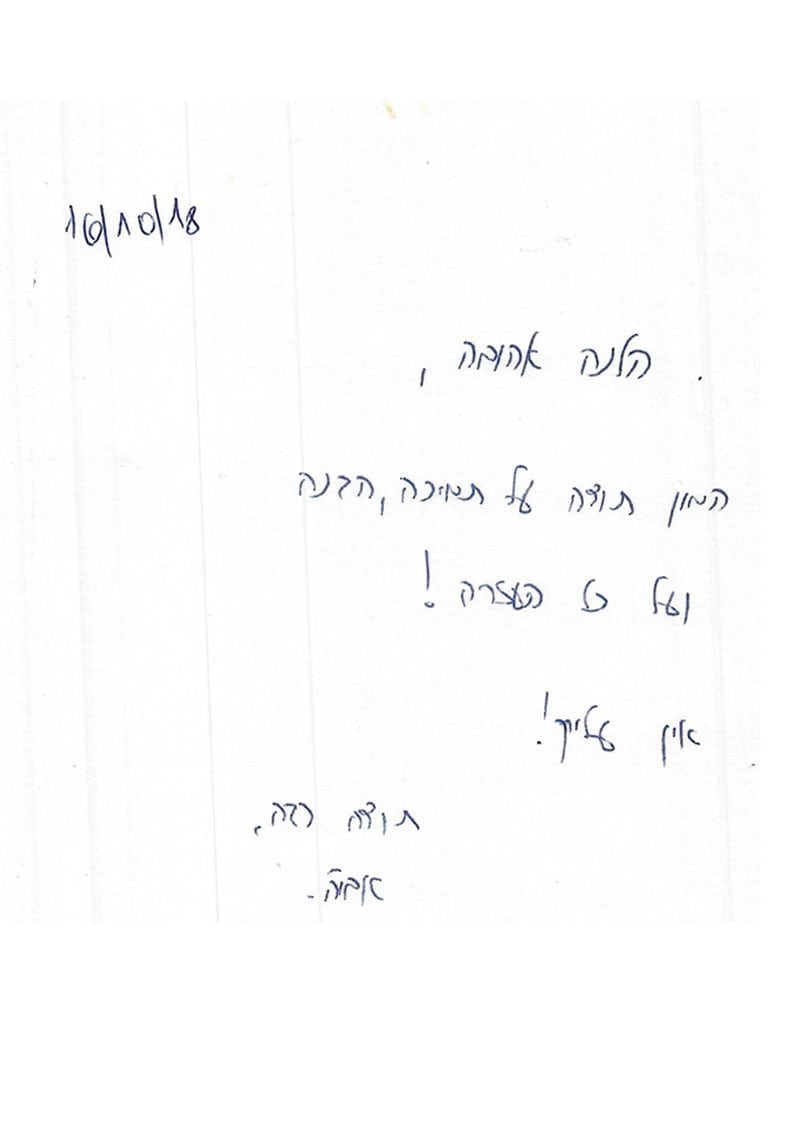 16/10/18
הלנה אהובה,
המון תודה על תמיכה, הבנה
ועל כל העזרה!
אין עלייך!
תודה רבה,
אביה.